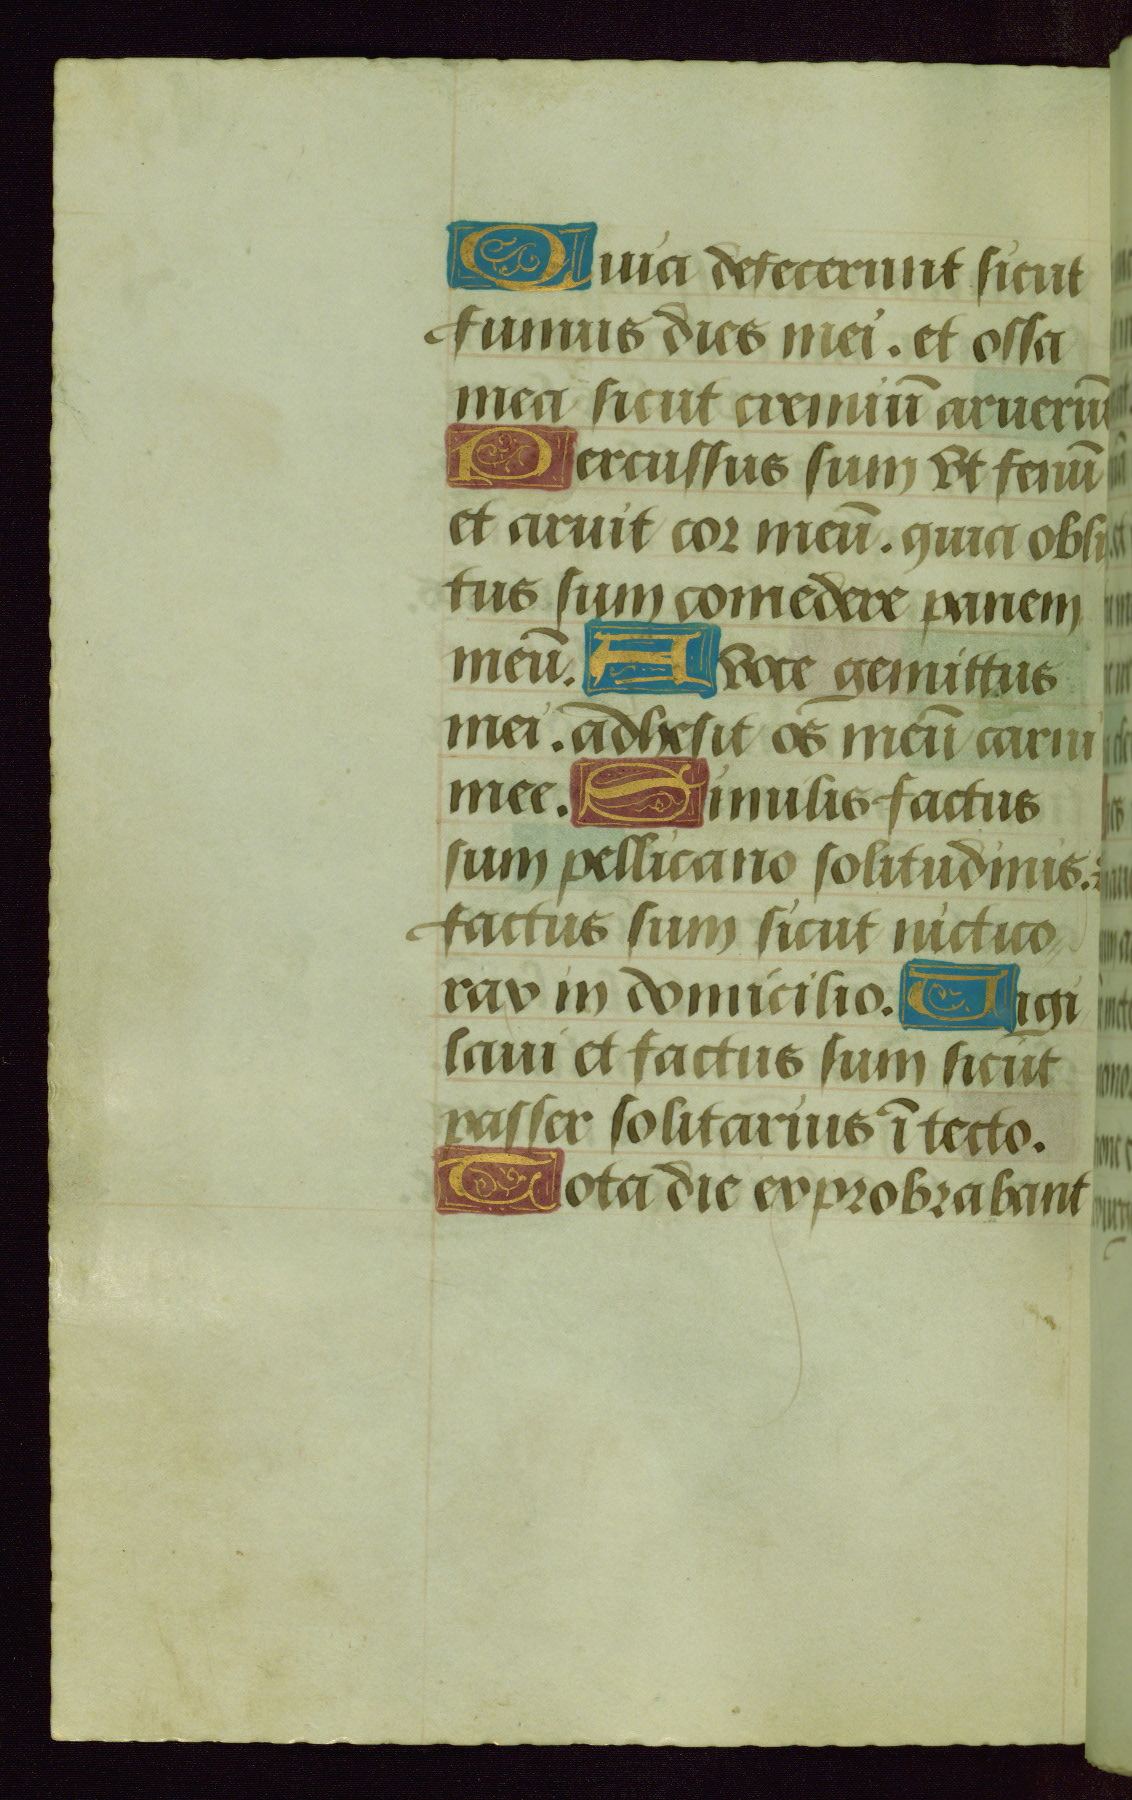 Quia defecerunt sicut
fumus dies mei. et ossa
mea sicut cremiū aruerūt
Percussus sum vt fenū
et aruit cor meū. quia obli
tus sum comedere panem
meū. A voce gemittus
mei. adhesit os meū carni
mee. Similis factus
sum pellicano solitudinis.
factus sum sicut nictico
rax in domicilio. Uigi
laui et factus sum sicut
passer solitarius ī tecto.
Tota die exprobrabant